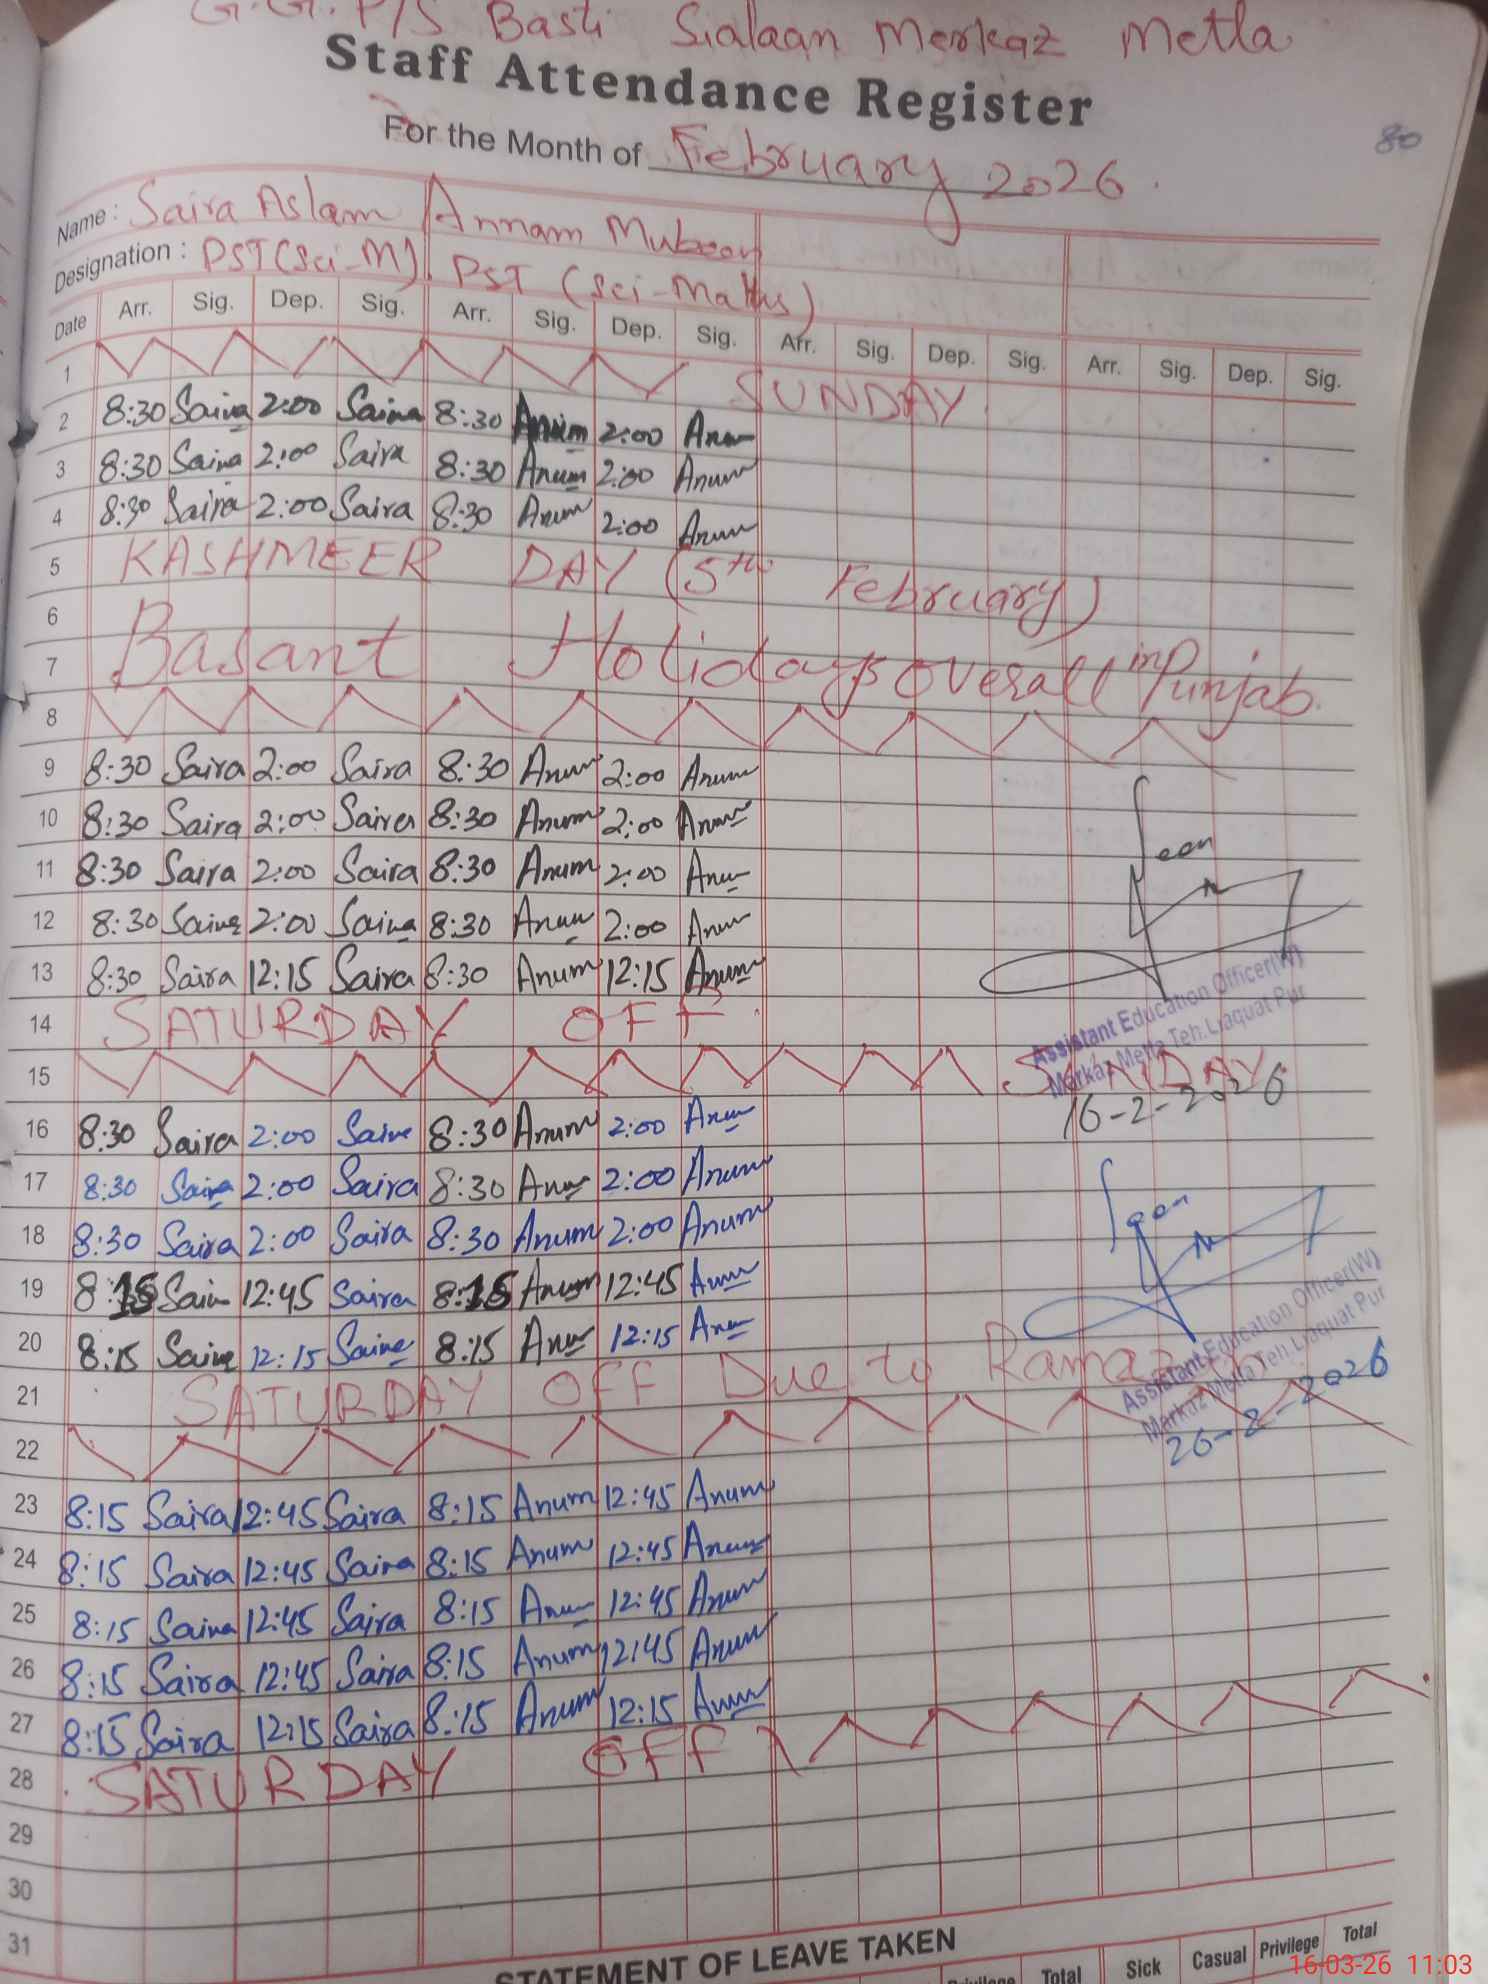 G.G.P/S Basti Sialaan Merkaz Metla
Staff Attendance Register
For the Month of February 2026.
80
Name: Saira Aslam Annam Mubeen
Designation: PST (Sci-M) PST (Sci-Maths)
Date Arr. Sig. Dep. Sig. Arr. Sig. Dep. Sig. Arr. Sig. Dep. Sig. Arr. Sig. Dep. Sig.
1 SUNDAY
2 8:30 Saira 2:00 Saira 8:30 Anum 2:00 Anum
3 8:30 Saira 2:00 Saira 8:30 Anum 2:00 Anum
4 8:30 Saira 2:00 Saira 8:30 Anum 2:00 Anum
5 KASHMEER DAY (5th February)
6
7 Basant Holidays overall in Punjab.
8
9 8:30 Saira 2:00 Saira 8:30 Anum 2:00 Anum
10 8:30 Saira 2:00 Saira 8:30 Anum 2:00 Anum
11 8:30 Saira 2:00 Saira 8:30 Anum 2:00 Anum
12 8:30 Saira 2:00 Saira 8:30 Anum 2:00 Anum
13 8:30 Saira 12:15 Saira 8:30 Anum 12:15 Anum
Seen
Assistant Education Officer(W)
Markaz Metla Teh. Liaquat Pur
14 SATURDAY OFF.
15 SUNDAY
16-2-2026
16 8:30 Saira 2:00 Saira 8:30 Anum 2:00 Anum
17 8:30 Saira 2:00 Saira 8:30 Anum 2:00 Anum
18 8:30 Saira 2:00 Saira 8:30 Anum 2:00 Anum
19 8:15 Saira 12:45 Saira 8:15 Anum 12:45 Anum
20 8:15 Saira 12:15 Saira 8:15 Anum 12:15 Anum
Seen
Assistant Education Officer(W)
Markaz Metla Teh. Liaquat Pur
26-2-2026
21 SATURDAY OFF Due to Ramazan
22
23 8:15 Saira 12:45 Saira 8:15 Anum 12:45 Anum
24 8:15 Saira 12:45 Saira 8:15 Anum 12:45 Anum
25 8:15 Saira 12:45 Saira 8:15 Anum 12:45 Anum
26 8:15 Saira 12:45 Saira 8:15 Anum 12:45 Anum
27 8:15 Saira 12:15 Saira 8:15 Anum 12:15 Anum
28 SATURDAY OFF
29
30
31
STATEMENT OF LEAVE TAKEN
Privilege Total Sick Casual Privilege Total
16-03-26 11:03